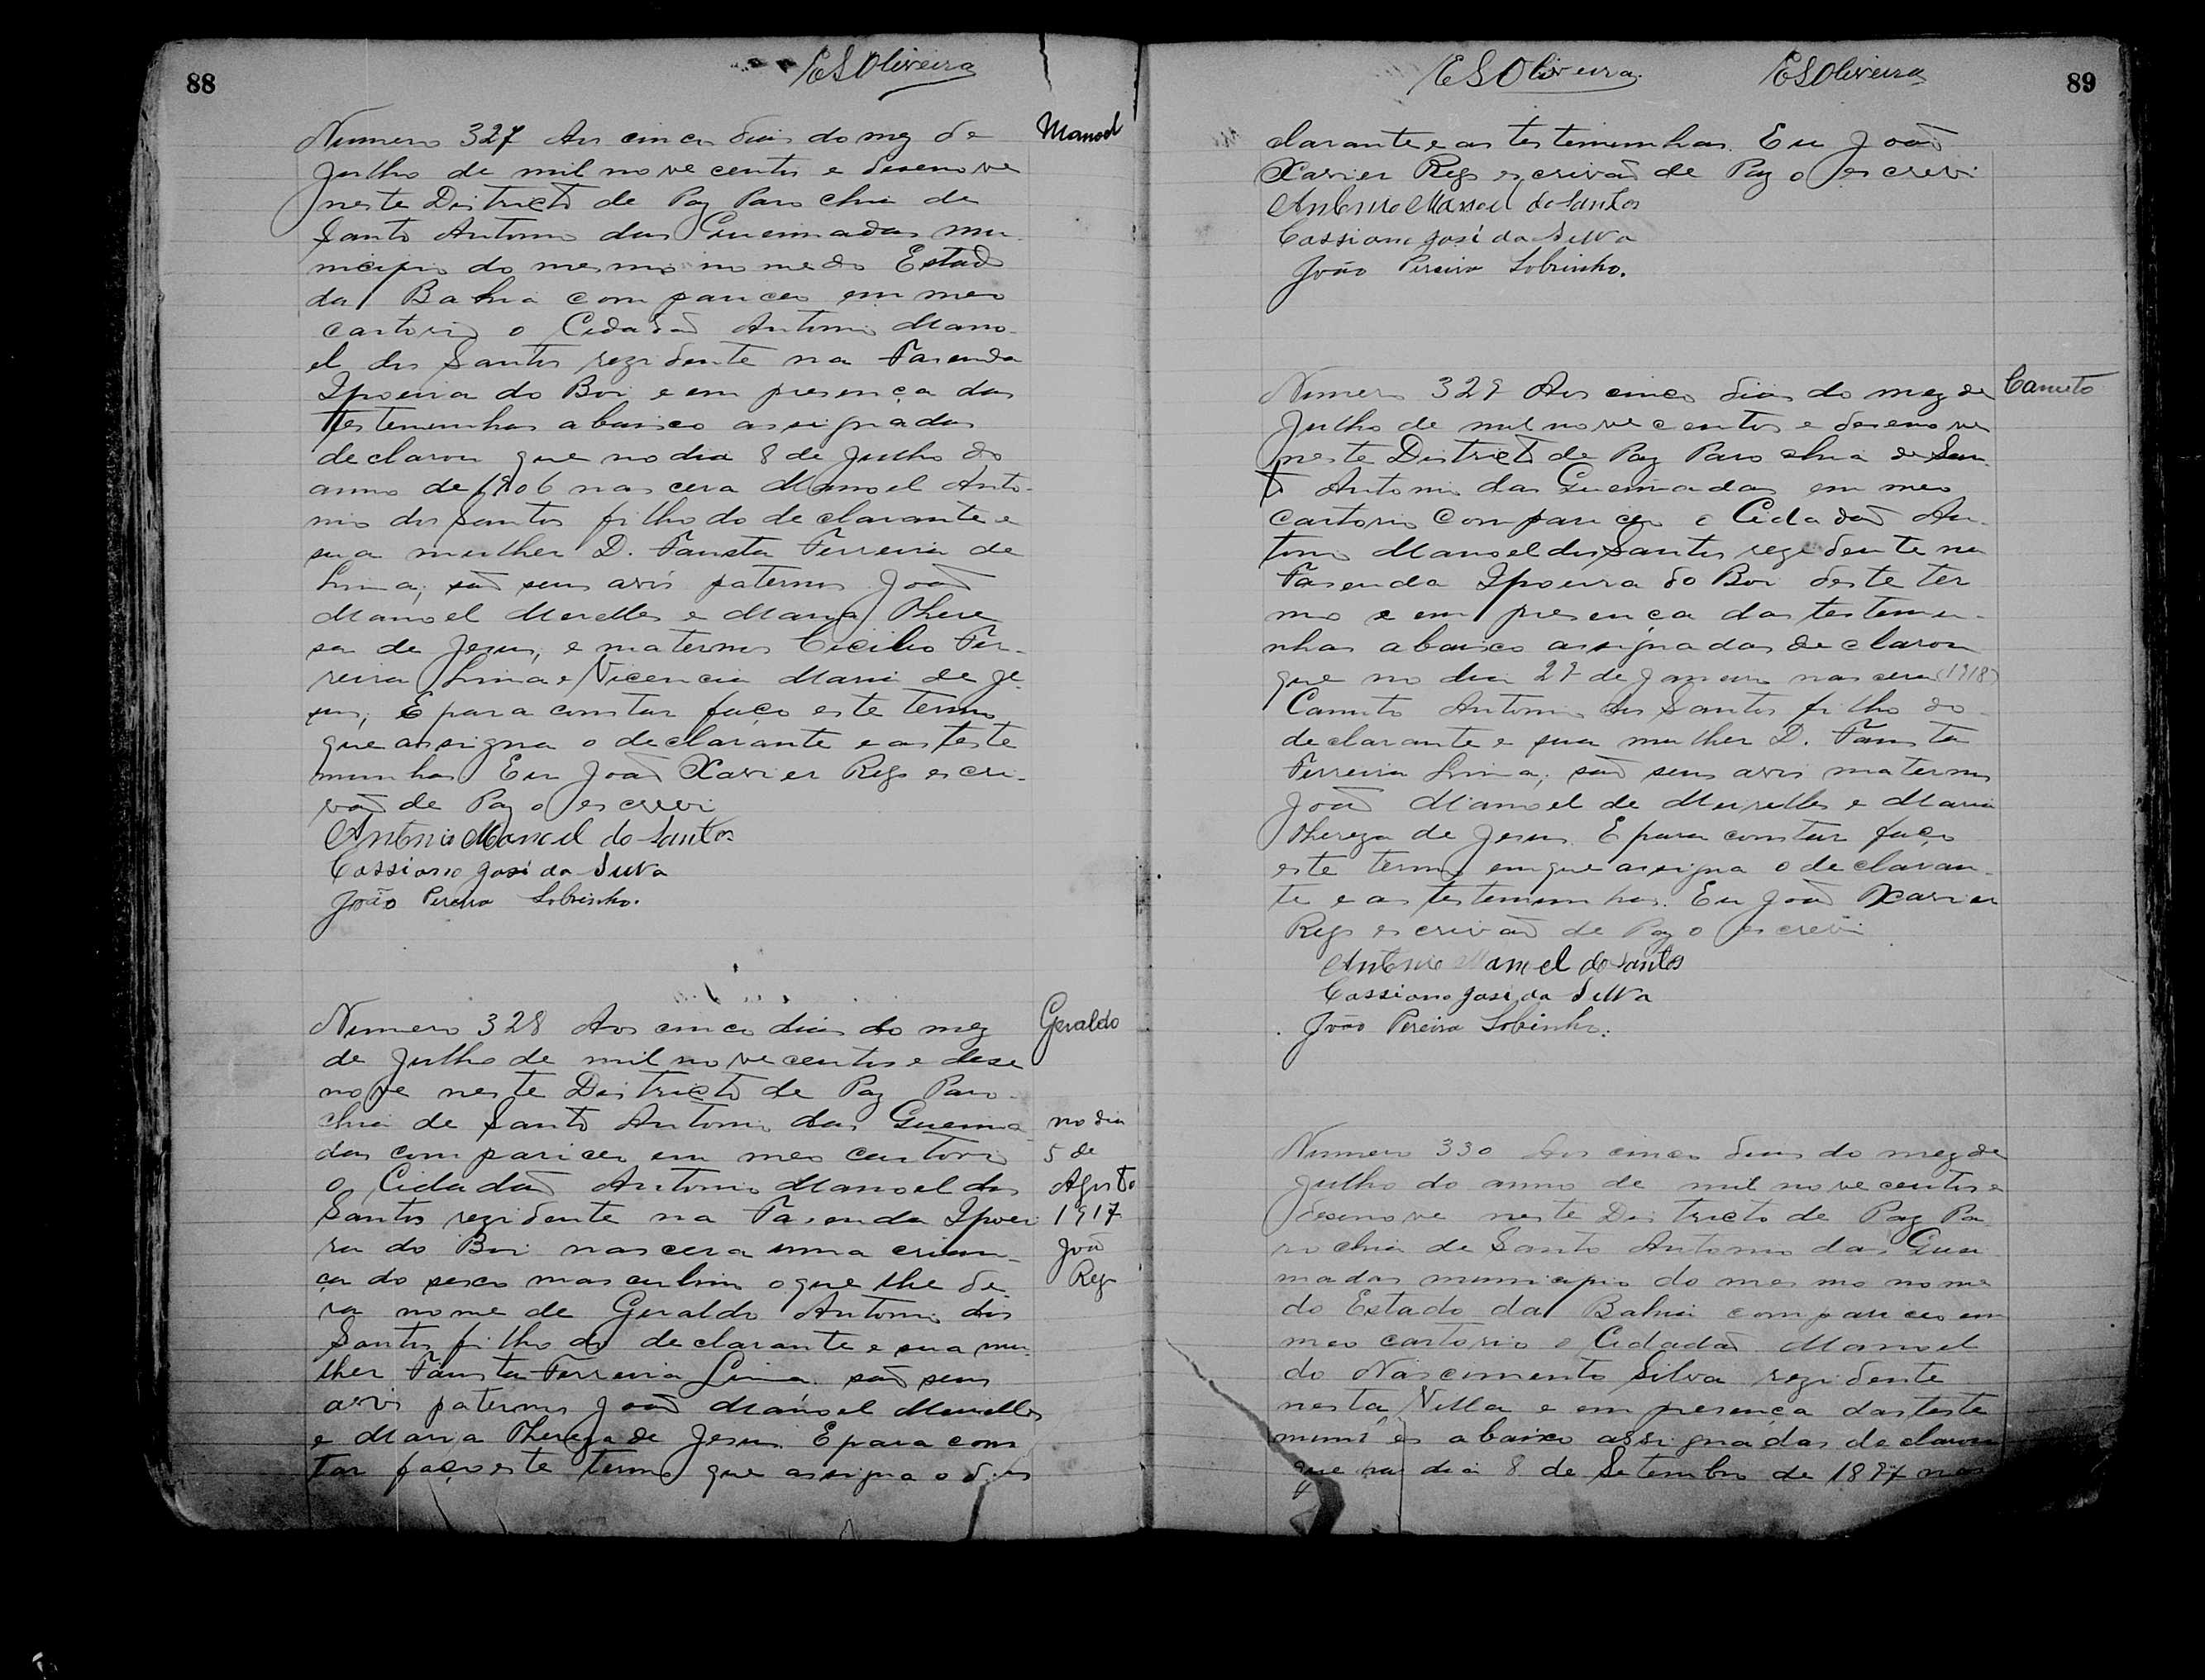 88
ESOliveira
Numero 327 Aos cinco dias do mez de
Julho de mil nove centos e desenove
neste Districto de Paz Parochia de
Santo Antonio das Queimadas mu-
nicipio do mesmo nome do Estado
da Bahia compareceu em meo
cartorio o Cidadão Antonio Mano-
el dos Santos rezidente na Fasenda
Ipoeira do Boi e em presença das
testemunhas abaixo assignadas
declarou que no dia 8 de Julho do
anno de 1906 nascera Manoel Anto-
nio dos Santos filho do declarante e
sua mulher D. Fausta Ferreira de
Lima; são seus avós paternos João
Manoel Merelles e Maria There
sa de Jesus, e maternos Cicilio Fer-
reira Lima e Vicencia Maria de Je-
sus; E para constar faço este termo
que assigna o declarante e as teste
munhas Eu João Xavier Rego escri-
vão de Paz o escrevi
Antonio Manoel do Santos
Cassiano José da Silva
João Pereira Sobrinho.
Manoel
Numero 328 Aos cinco dias do mez
de Julho de mil nove centos e dese
nove neste Districto de Paz Paro-
chia de Santo Antonio das Queima-
das compariceo em meo cartorio
o Cidadão Antonio Manoel dos
Santos rezidente na Fasenda Ipoei
ra do Boi nascera uma crian-
ça do sexo masculino o que lhe de-
ra nome de Geraldo Antonio dos
Santos filho do declarante e sua mu-
lher Fausta Ferreira Lima são seus
avós paternos João Manoel Merelles
e Maria Thereza de Jesus. E para cons
tar faço este termo que assigna o de
Geraldo
no dia
5 de
Agosto
1917
João
Rego
ESOliveira
ESOliveira
89
clarante e as testemunhas. Eu João
Xavier Rego escrivão de Paz o escrevi
Antonio Manoel do Santos
Cassiano José da Silva
João Pereira Sobrinho.
Numero 329 Aos cinco dias do mez de
Julho de mil nove centos e desenove
neste Districto de Paz Parochia de San-
to Antonio das Queimadas em meo
cartorio compariceo o Cidadão An-
tonio Manoel dos Santos rezidente na
Fasenda Ipoeira do Boi deste ter
mo e em presença das testemu-
nhas abaixo assignadas declarou
que no dia 29 de Janeiro nascera (1918)
Canuto Antonio dos Santos filho do
declarante e sua mulher D. Fausta
Ferreira Lima; são seus avós maternos
João Manoel de Meirelles e Maria
Thereza de Jesus. E para constar faço
este termo em que assigna o declaran-
te e as testemunhas. Eu João Xavier
Rego escrivão de Paz o escrevi
Antonio Manoel do Santos
Cassiano José da Silva
João Pereira Sobrinho.
Canuto
Numero 330 Aos cinco dias do mez de
Julho do anno de mil nove centos e
desenove neste Districto de Paz Pa-
rochia de Santo Antonio das Quei
madas municipio do mesmo nome
do Estado da Bahia compareceo em
meo cartorio o Cidadão Manoel
do Nascimento Silva rezidente
nesta Villa e em presença das teste
abaixo assignadas declarou
que no dia 8 de Setembro de 1897 nas